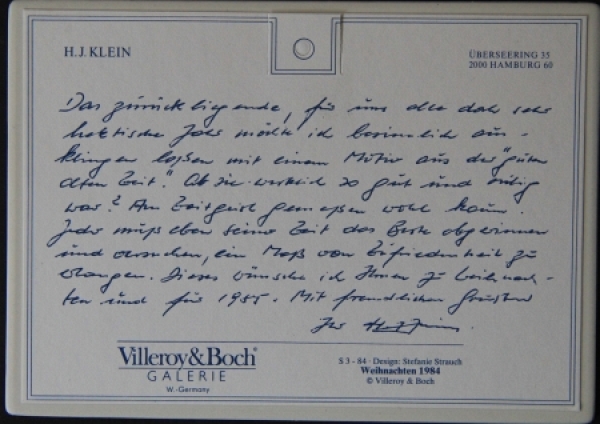 H. J. KLEIN
ÜBERSEERING 35
2000 HAMBURG 60
Das zurückliegende, für uns alle sehr
hektische Jahr möchte ich besinnlich aus-
klingen laßen mit einem Motiv aus der "guten
alten Zeit". Ob sie wirklich so gut und ruhig
war? Am Zeitgeist gemeßen wohl kaum.
Jeder muß eben seiner Zeit das Beste abgewinnen
und versuchen, ein Maß von Zufriedenheit zu
erlangen. Dieses wünsche ich Ihnen zu Weihnach-
ten und für 1985. Mit freundlichen Grüßen
Ihr
Villeroy & Boch®
GALERIE
W.-Germany
S 3 - 84 · Design: Stefanie Strauch
Weihnachten 1984
© Villeroy & Boch